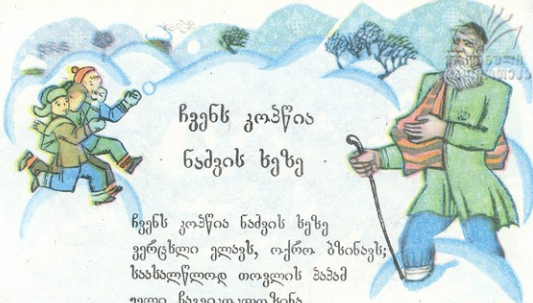 ეროვნული
ჩვენს კოპწია
ნაძვის ხეზე
ჩვენს კოპწია ნაძვის ხეზე
ვერცხლი ელავს, ოქრო ბზინავს;
საახალწლოდ თოვლის პაპამ